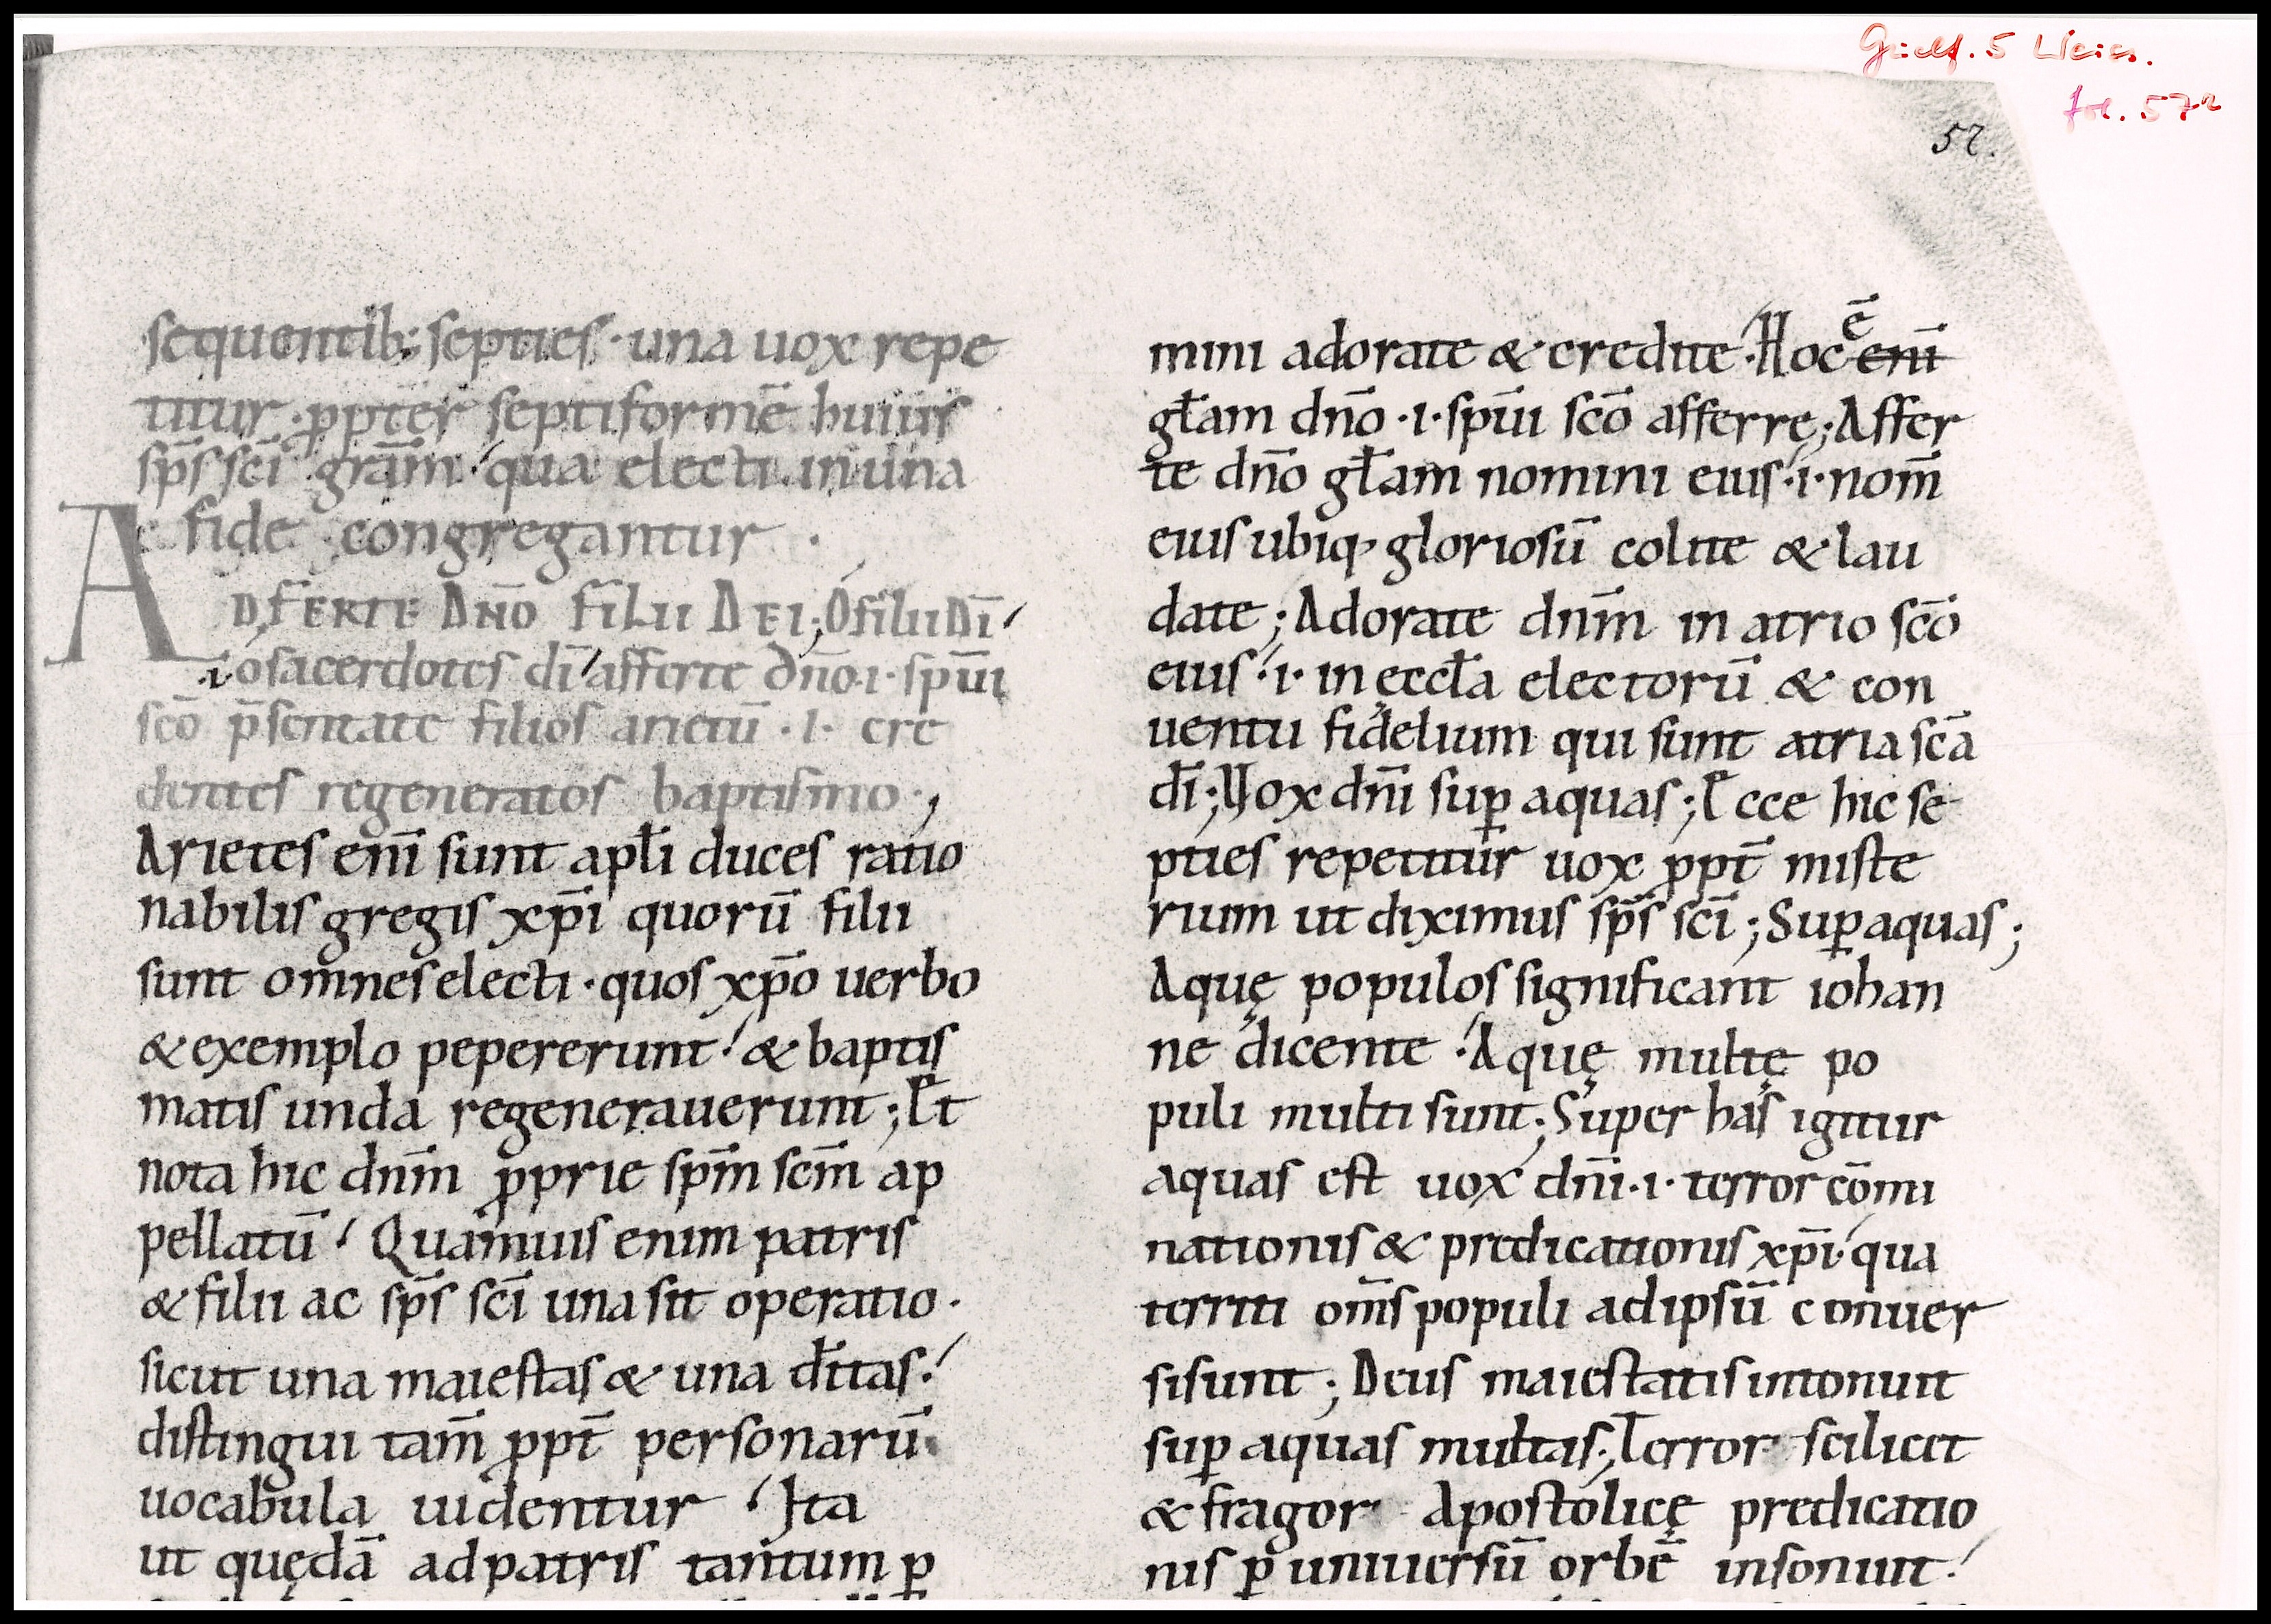 Guelf. 5 Weiss.
fol. 57r
57.
sequentib; septies · una uox repe
titur · ꝓpter septiformē huius
sp̄s sc̄i gr̄am ! qua electi in una
fide congregantur ·
ADFERTE DN̄O FILII DEI; O filii dī !
·i· o sacerdotes dī ! afferte dn̄o ·i· spūi
sc̄o p̄sentate filios arietū · i · cre
dentes regeneratos baptismo ;
Arietes enī sunt apl̄i duces ratio
nabilis gregis xp̄i quorū filii
sunt omnes electi · quos xp̄o uerbo
& exemplo pepererunt ! & baptis
matis unda regenerauerunt ; Et
nota hic dn̄m ꝓprie sp̄m sc̄m ap
pellatū ! Quamuis enim patris
& filii ac sp̄s sc̄i una sit operatio ·
sicut una maiestas & una d̄itas !
distingui tam̄ ꝓpt̄ personarū
uocabula uidentur ! Ita
ut quędā ad patris tantum ꝑ
mini adorate & credite ! Hoc ē enī
gl̄am dn̄o · i · spūi sc̄o afferre ; Affer
te dn̄o gl̄am nomini eius ! i · nom̄
eius ubiq; gloriosū colite & lau
date ; Adorate dn̄m in atrio sc̄o
eius ! i · in ęccl̄a electorū & con
uentu fidelium qui sunt atria sc̄a
dī ; Uox dn̄i suꝑ aquas ; Ecce hic se
pties repetitur uox ꝓpt̄ miste
rium ut diximus sp̄s sc̄i ; Suꝑ aquas ;
Aquę populos significant iohan
ne dicente ! Aquę multę po
puli multi sunt ; Super has igitur
aquas est uox dn̄i · i · terror cōmi
nationis & predicationis xp̄i ! qua
territi om̄s populi ad ipsū conuer
si sunt ; Deus maiestatis intonuit
suꝑ aquas multas ; Terror scilicet
& fragor Apostolicę predicatio
nis ꝑ uniuersū orbē insonuit !